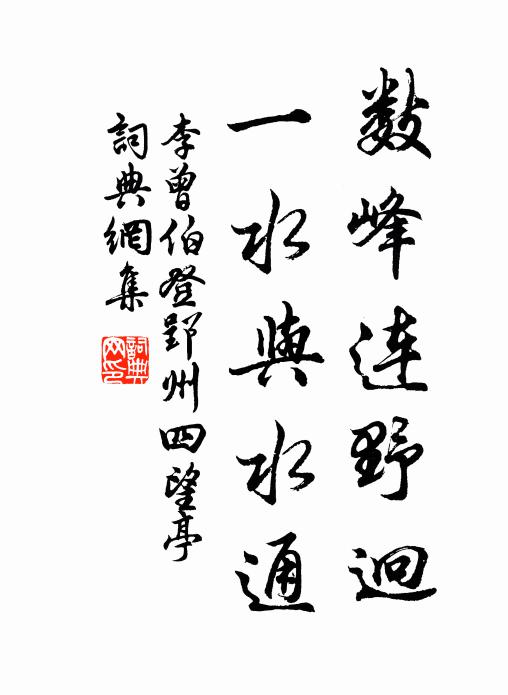 數峰連野迥
一水與水通
李曾伯登郢州四望亭
詞典網集
詞典
网印